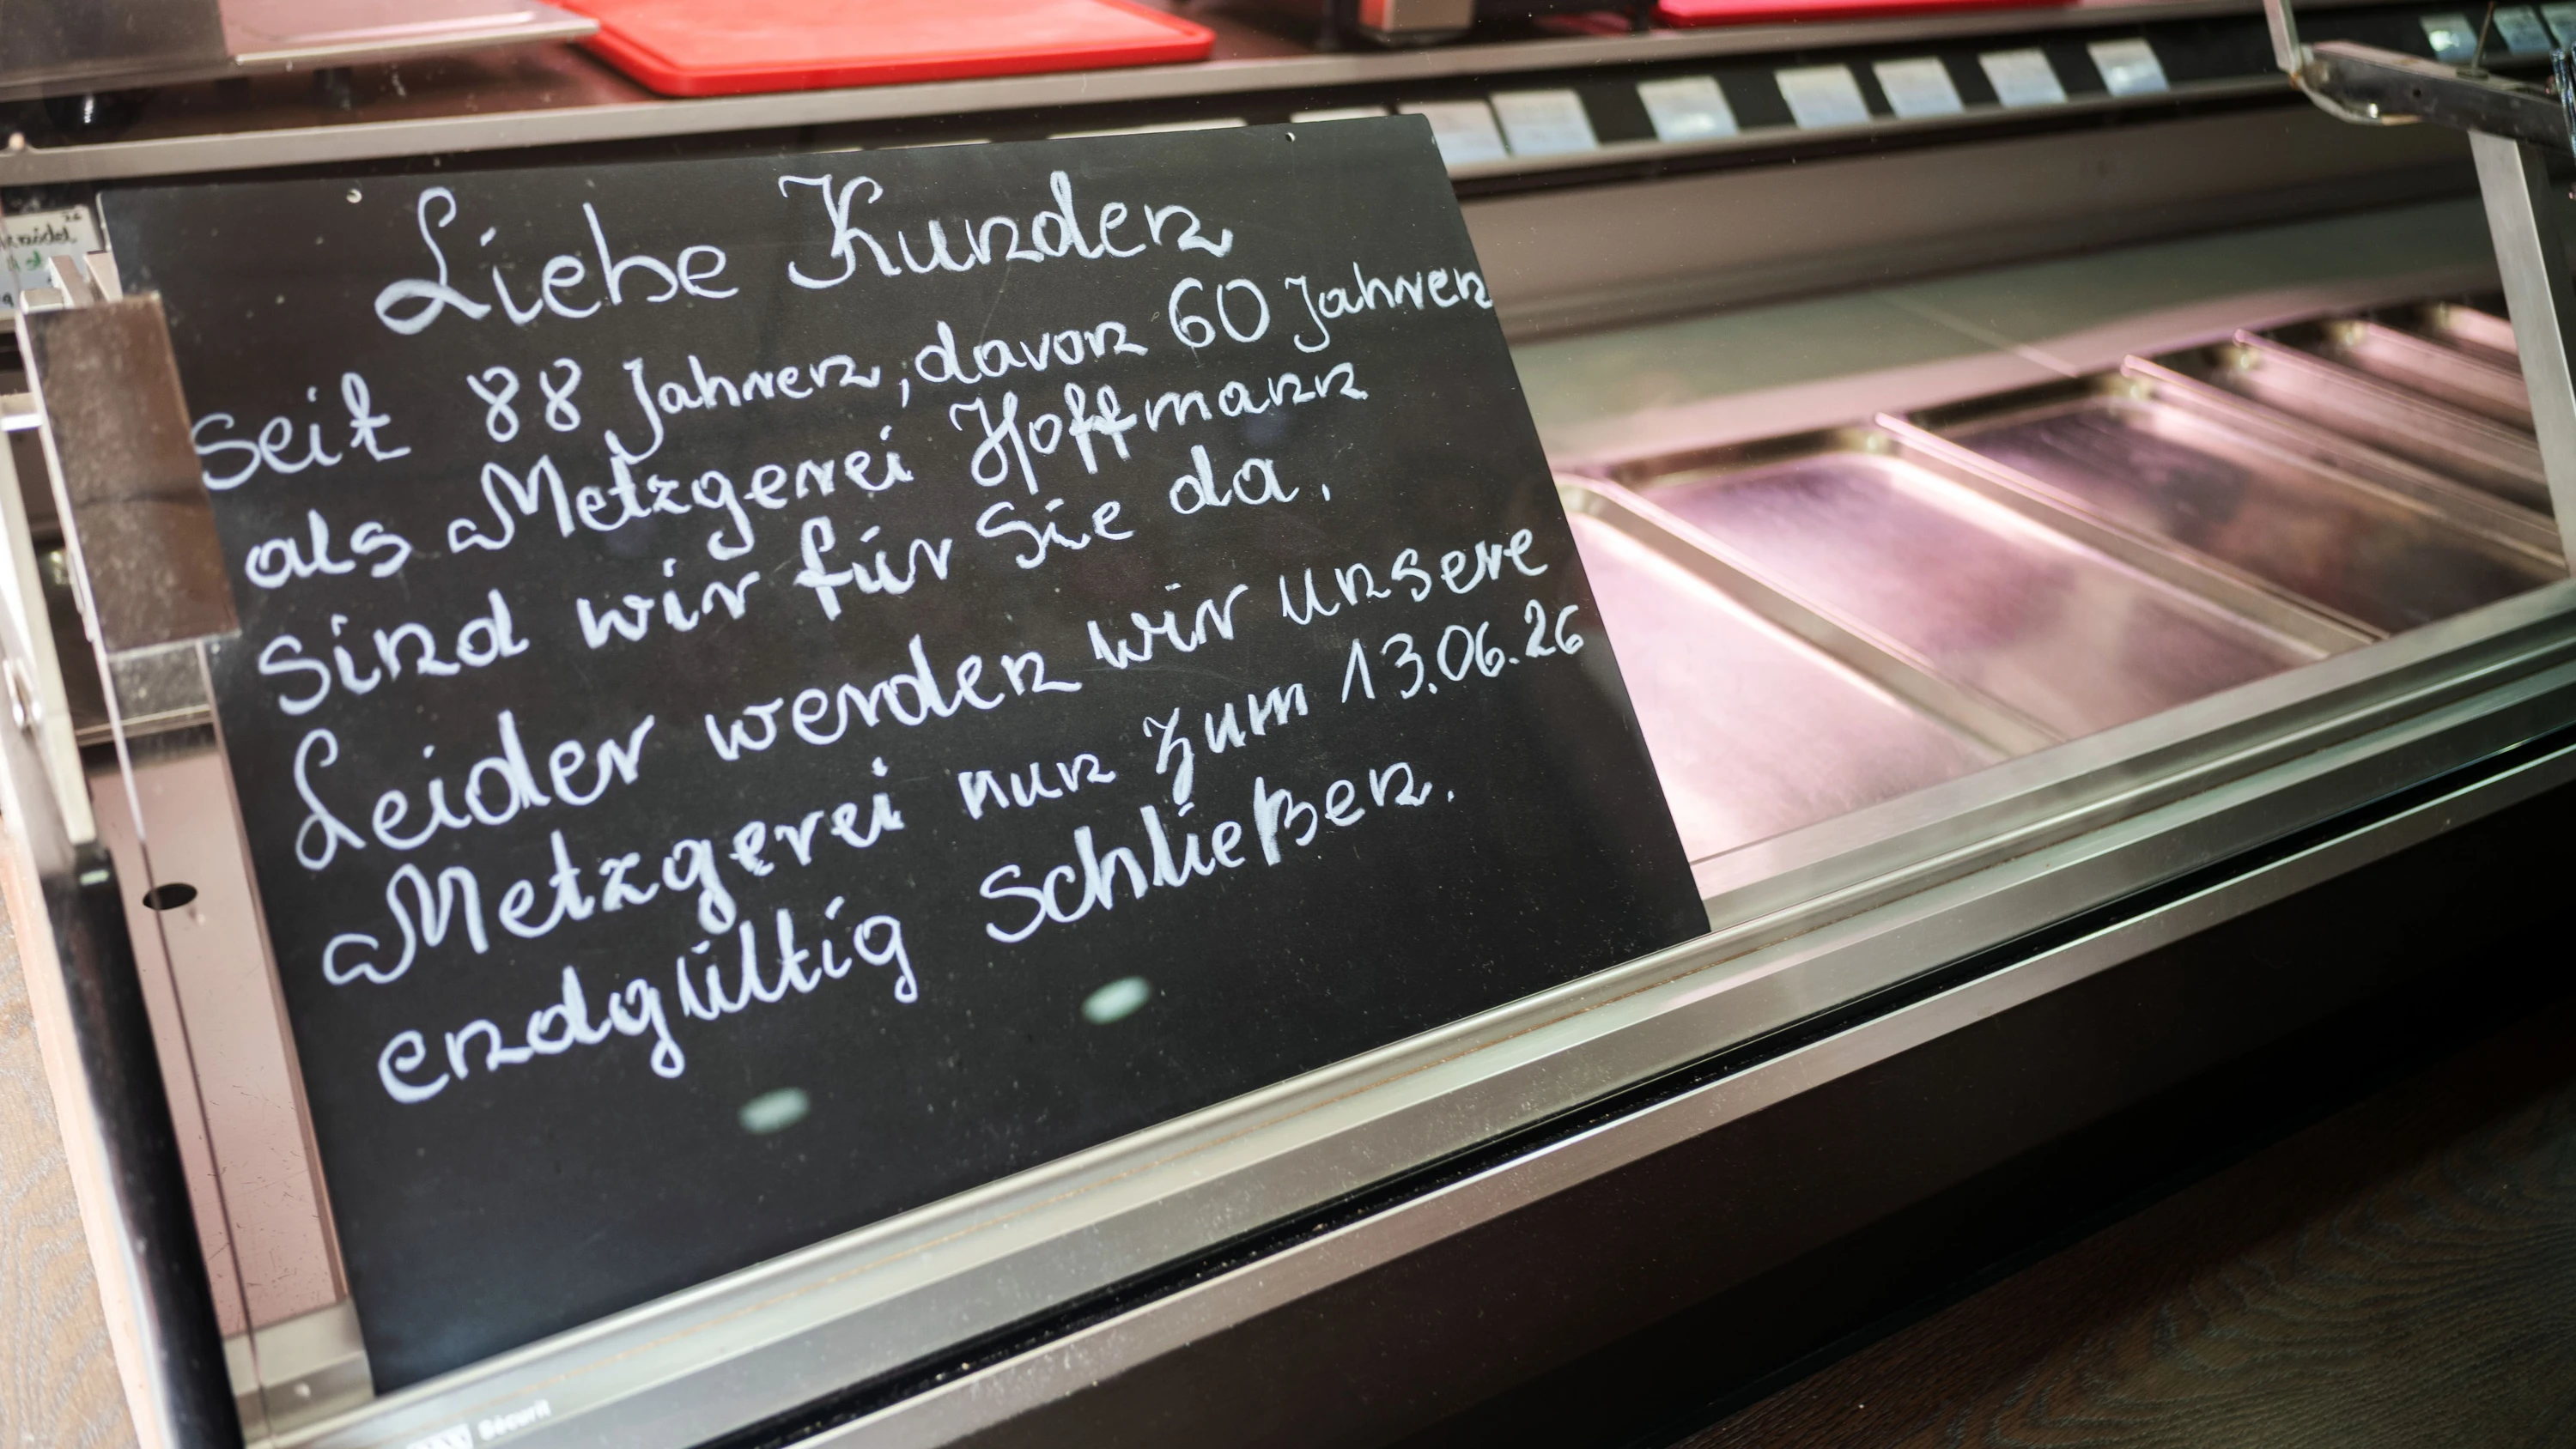 Liebe Kunden
seit 88 Jahren, davon 60 Jahren
als Metzgerei Hoffmann
sind wir für Sie da.
Leider werden wir unsere
Metzgerei nun zum 13.06.26
endgültig schließen.
Sécurit